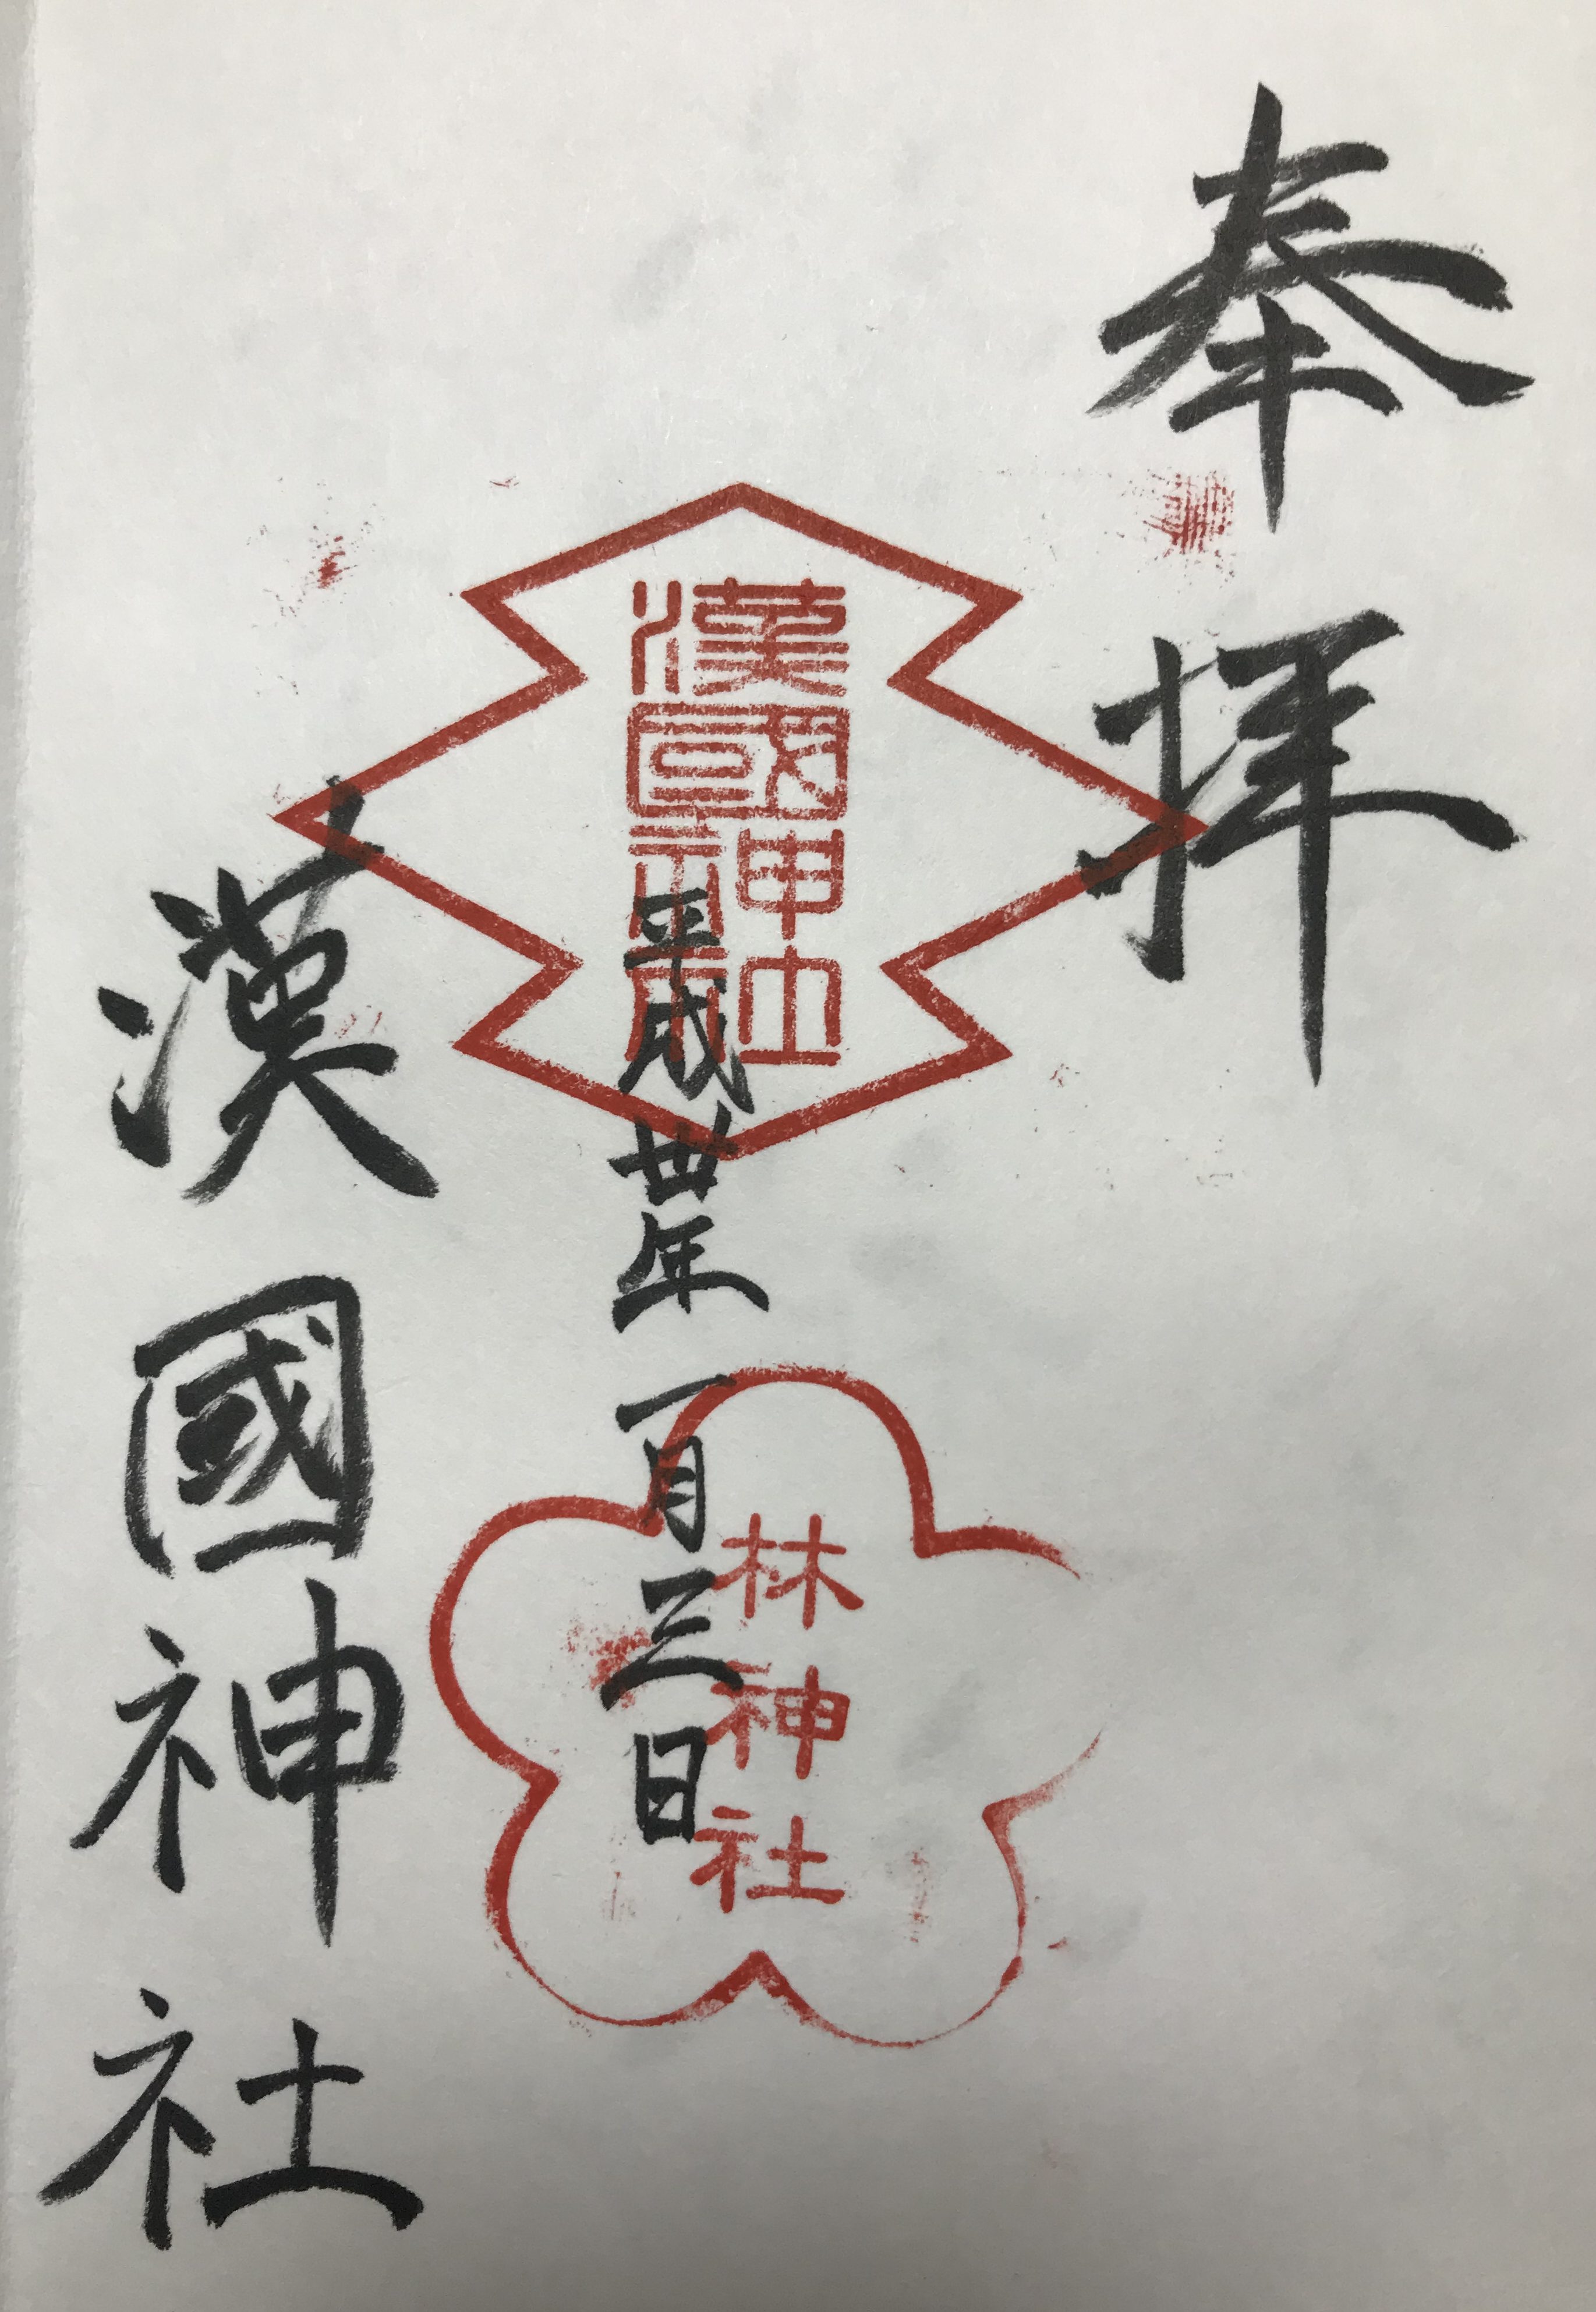 奉拝
漢國神社
林神社
平成丗年一月三日
漢國神社